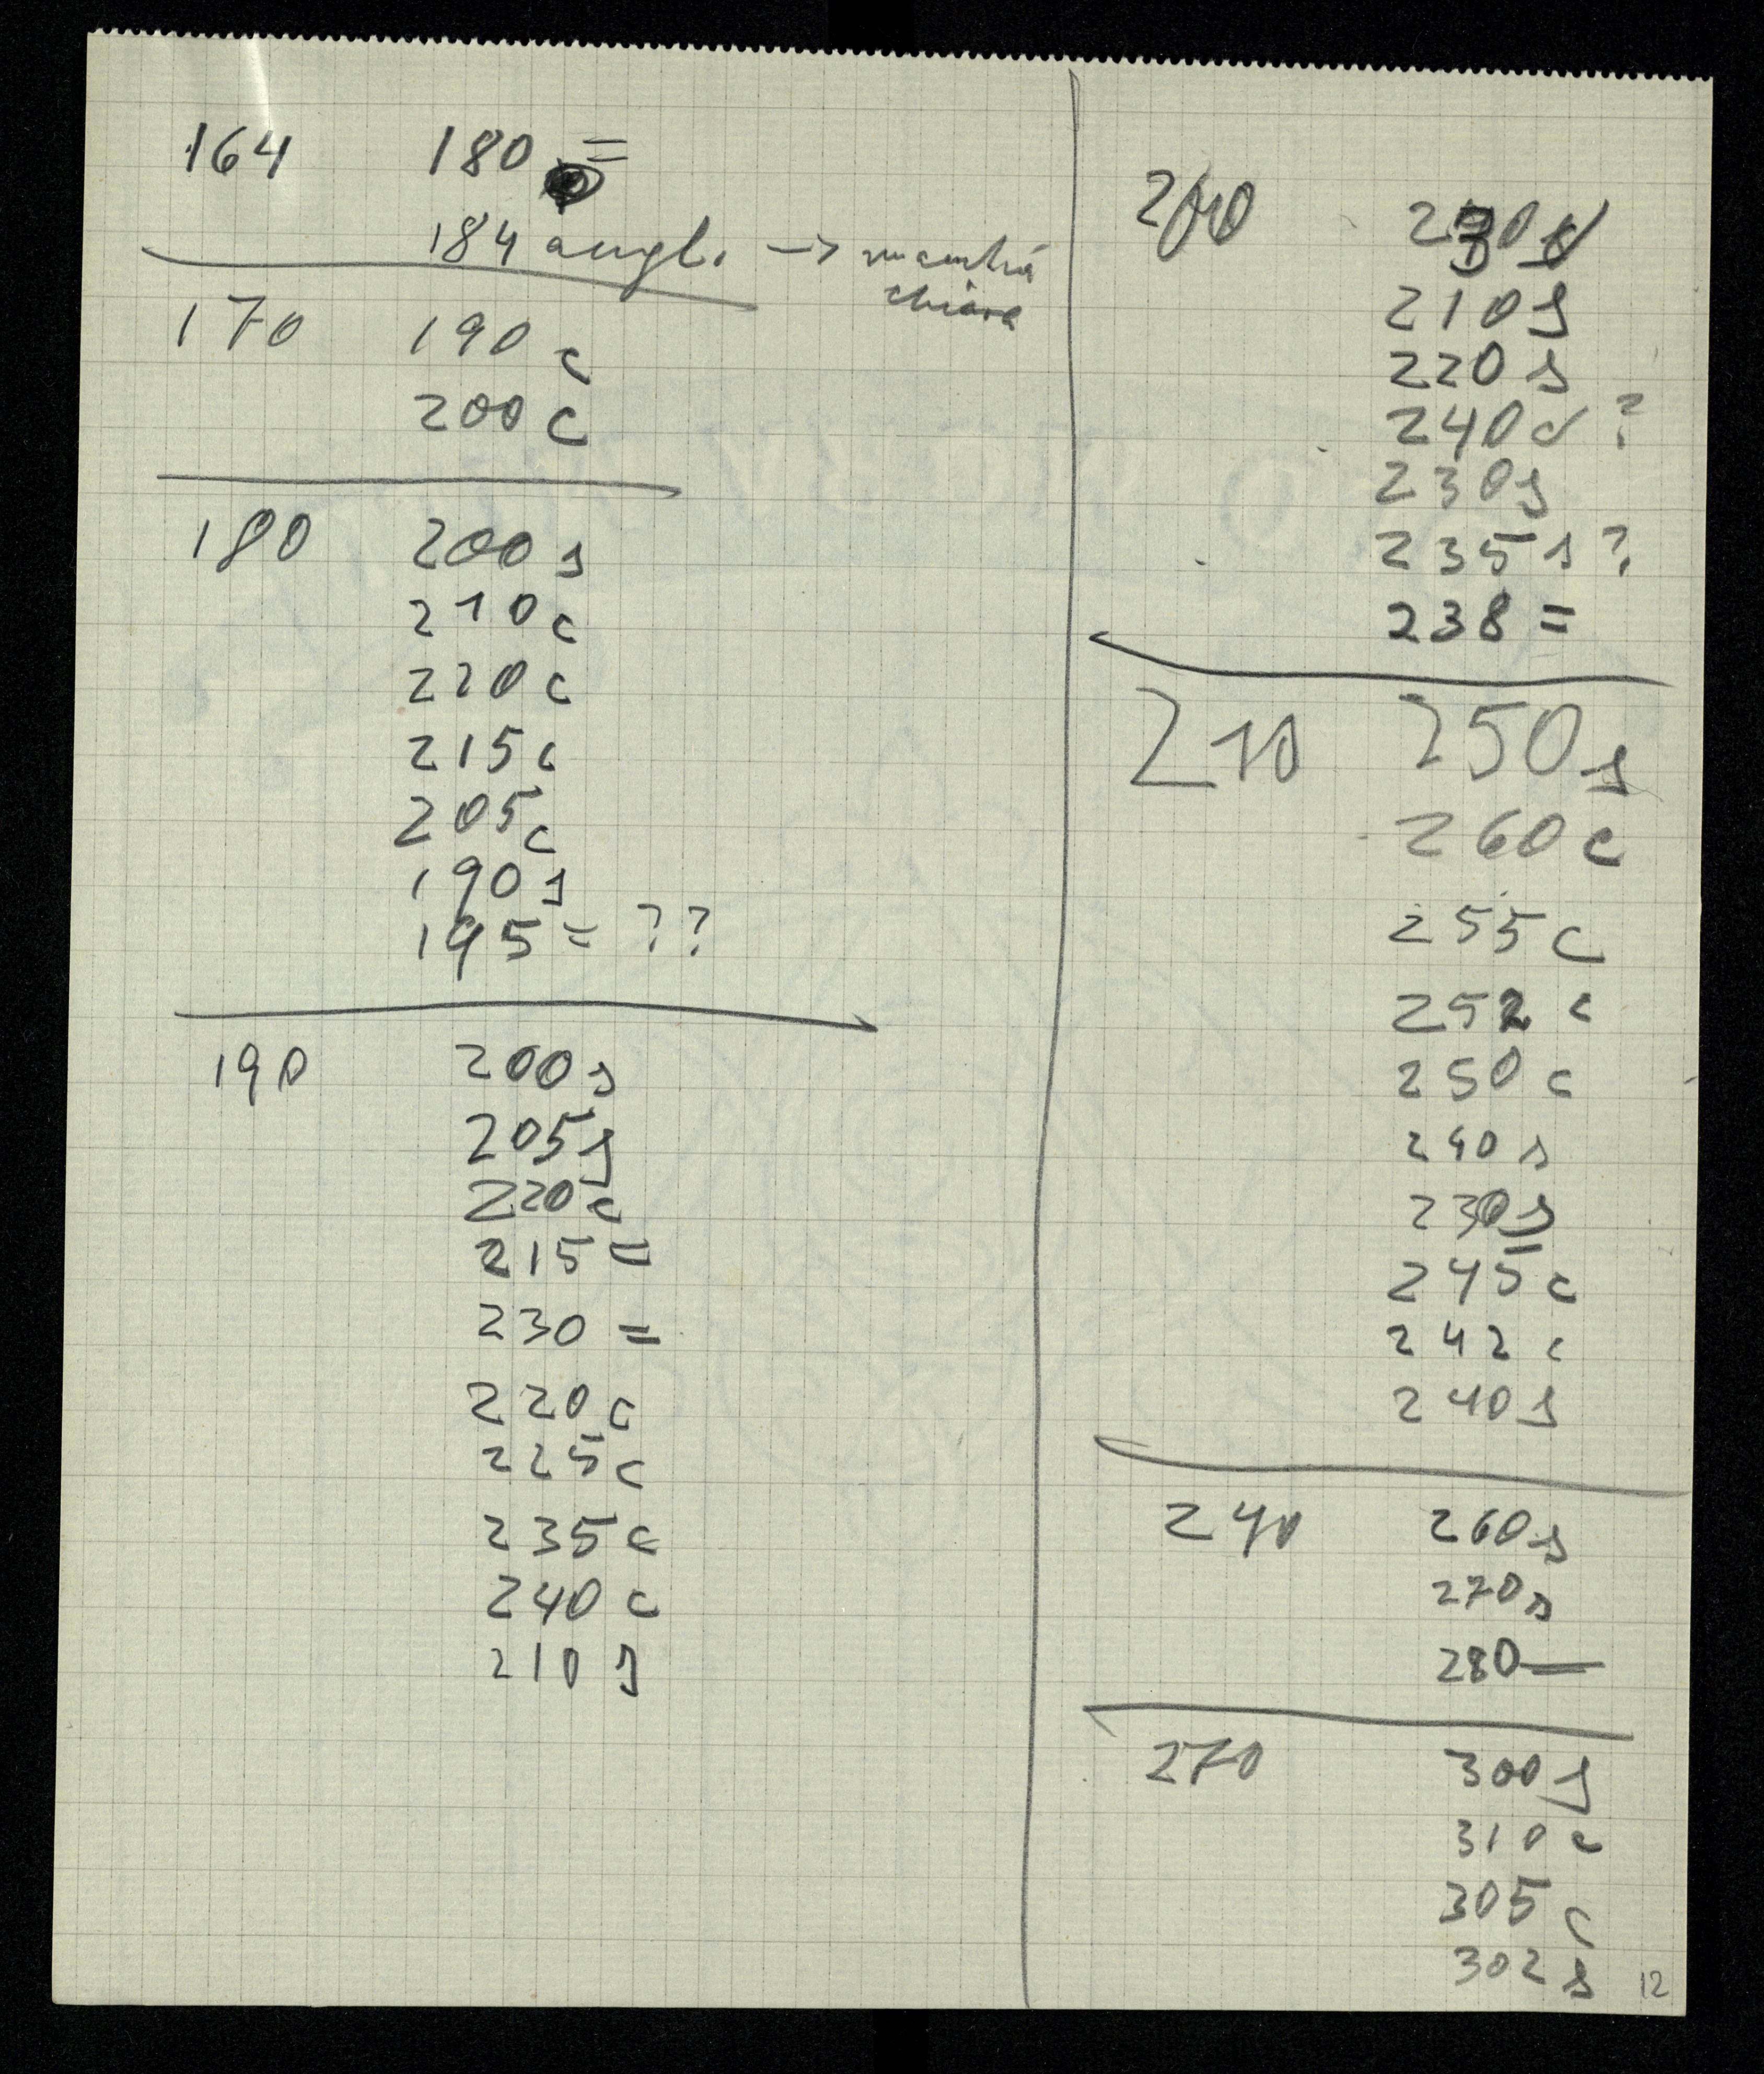 164 180 =
184 angl. →
chiara
170 190 c
200 c
180 200 s
210 c
220 c
215 c
205 c
190 s
195 = ??
190 200 s
205 s
220 c
215 =
230 =
220 c
225 c
235 c
240 c
210 s
200 230
210 s
220 s
240 c ?
230 s
235 s ?
238 =
210 250 s
260 c
255 c
252 c
250 c
240 s
230 s
245 c
242 c
240 s
240 260 s
270 s
280 —
270 300 s
310 c
305 c
302 s
12